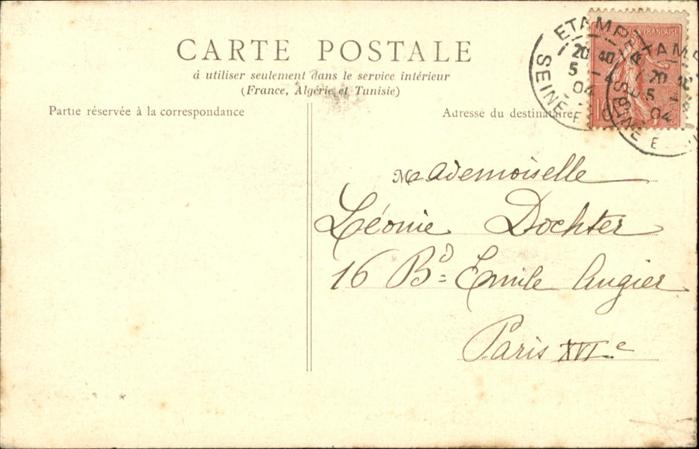 CARTE POSTALE
à utiliser seulement dans le service intérieur
(France, Algérie et Tunisie)
Partie réservée à la correspondance
Adresse du destinataire
ETAMPES
20 40
5 -4
04
SEINE-E
FRANÇAISE
ETAMPE
20
5
04
SEINE E
Mademoiselle
Léonie Dochter
16 Bd Emile Augier
Paris XVIe